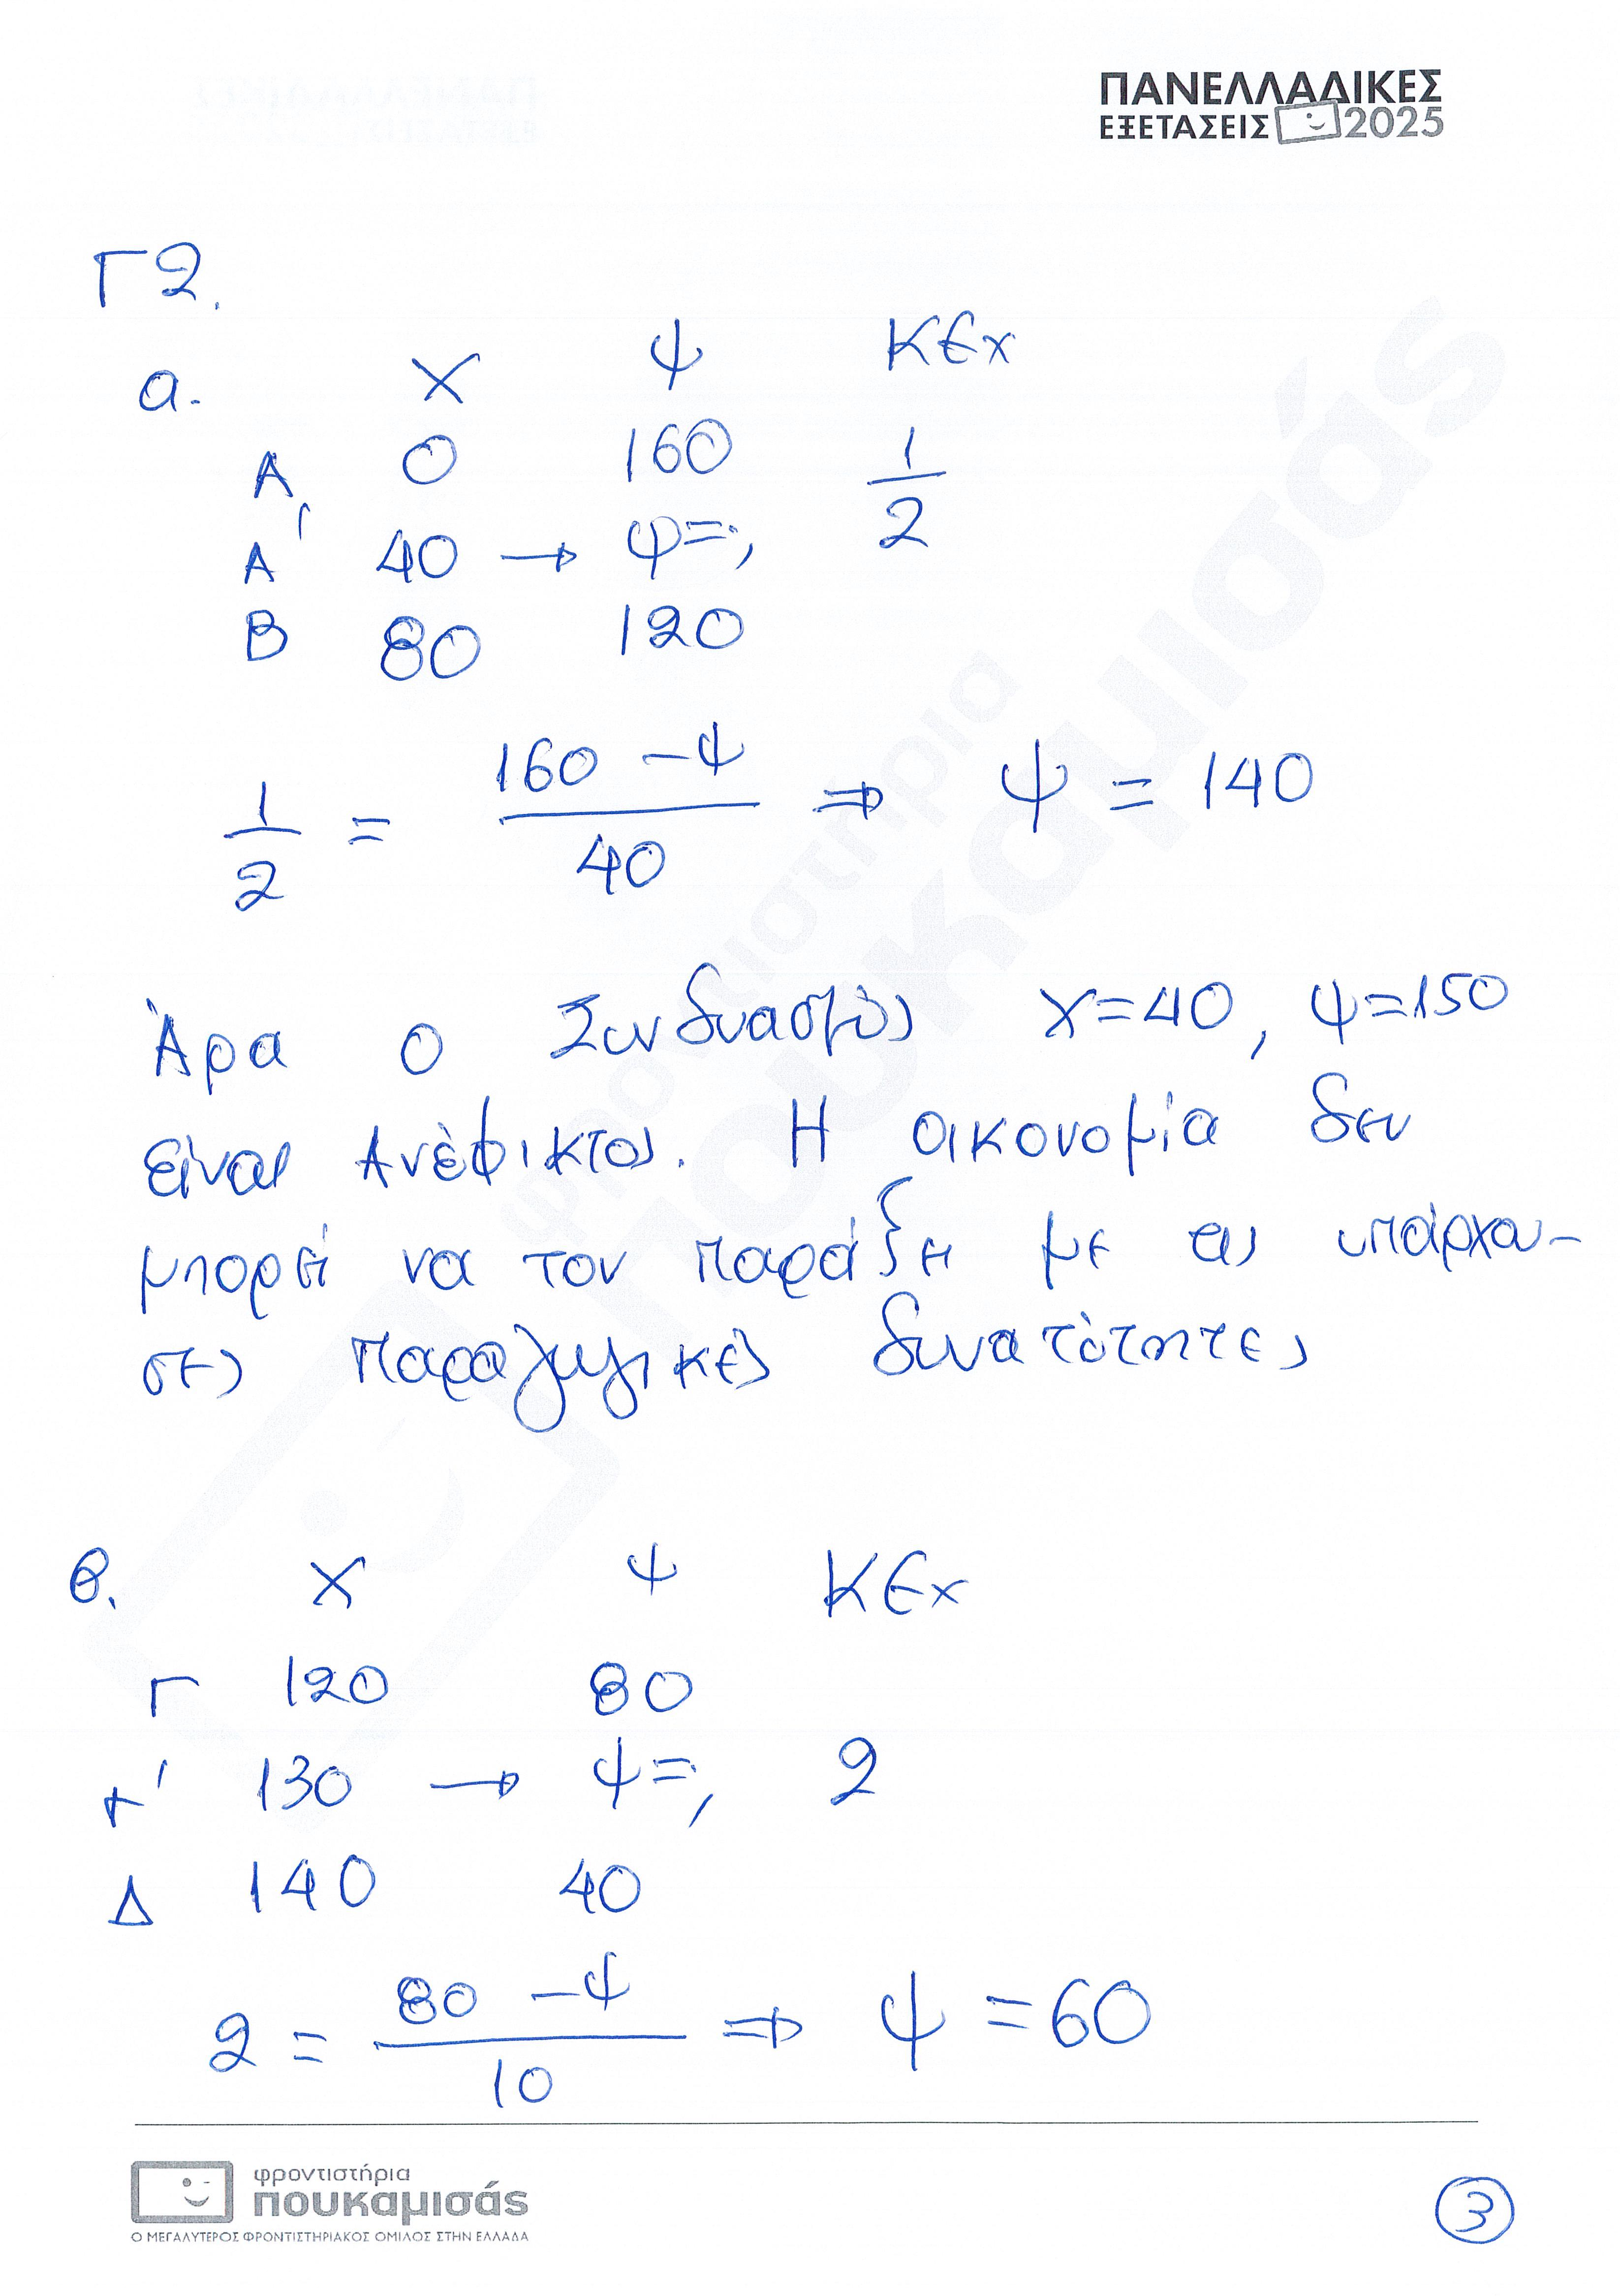 ΠΑΝΕΛΛΑΔΙΚΕΣ
ΕΞΕΤΑΣΕΙΣ 2025
Γ2.
α. Χ Ψ ΚΕχ
Α 0 160 1/2
Α' 40 → Ψ=;
Β 80 120
1/2 = (160 - Ψ)/40 ⇒ Ψ = 140
Άρα ο Συνδυασμός Χ=40, Ψ=150
είναι Ανέφικτος. Η οικονομία δεν
μπορεί να τον παράξει με τις υπάρχου-
σες παραγωγικές δυνατότητες
β. Χ Ψ ΚΕχ
Γ 120 80
Γ' 130 → Ψ=; 2
Δ 140 40
2 = (80 - Ψ)/10 ⇒ Ψ = 60
φροντιστήρια
πουκαμισάς
Ο ΜΕΓΑΛΥΤΕΡΟΣ ΦΡΟΝΤΙΣΤΗΡΙΑΚΟΣ ΟΜΙΛΟΣ ΣΤΗΝ ΕΛΛΑΔΑ
3
φροντιστήρια
πουκαμισάς